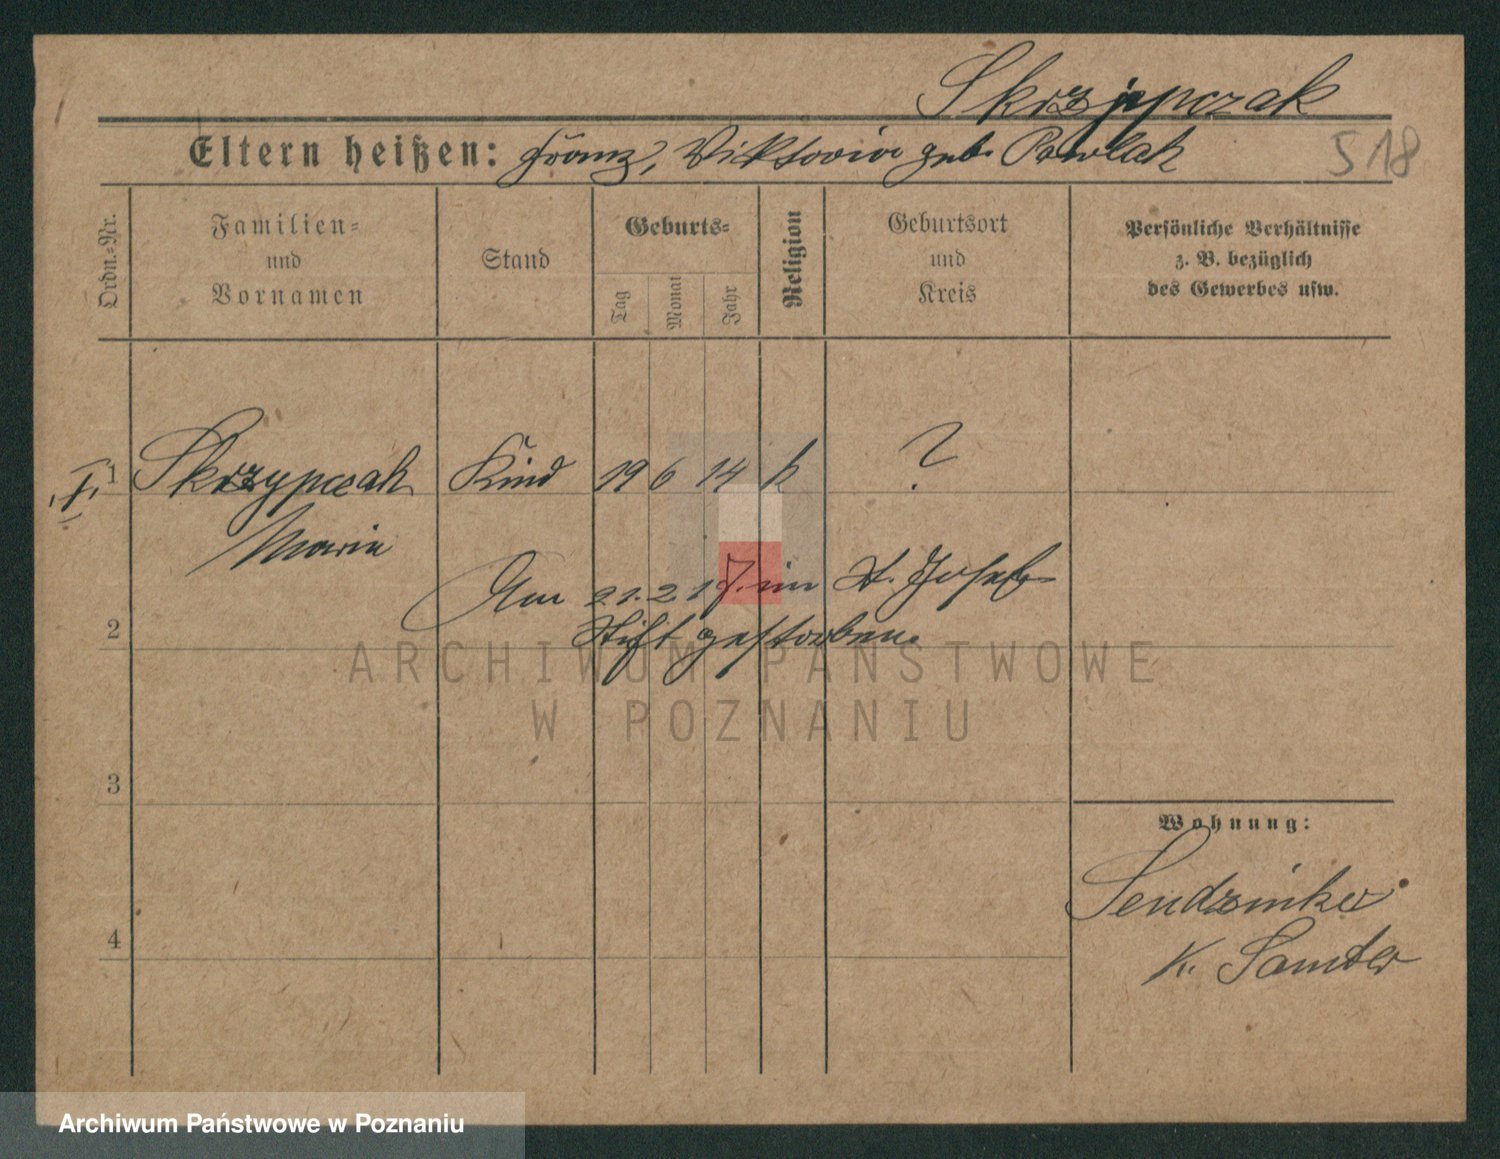 Skrzypczak
Eltern heißen: Franz, Viktoria geb. Pawlak
518
Ordn.-Nr.
Familien-
und
Vornamen
Stand
Geburts-
Tag
Monat
Jahr
Religion
Geburtsort
und
Kreis
Persönliche Verhältnisse
z. B. bezüglich
des Gewerbes usw.
1 Skrzypczak Kind 19 6 14 k ?
Maria
Am 21.2.17. im St. Josef
Stift gestorben.
2
ARCHIWUM PAŃSTWOWE
W POZNANIU
3
Wohnung:
Sendzinko
4
K. Samter
Archiwum Państwowe w Poznaniu